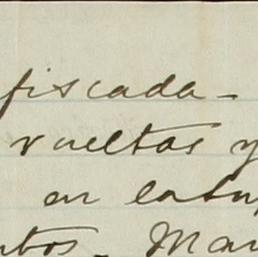 fiscada-
vueltas y
en
ntos. Man